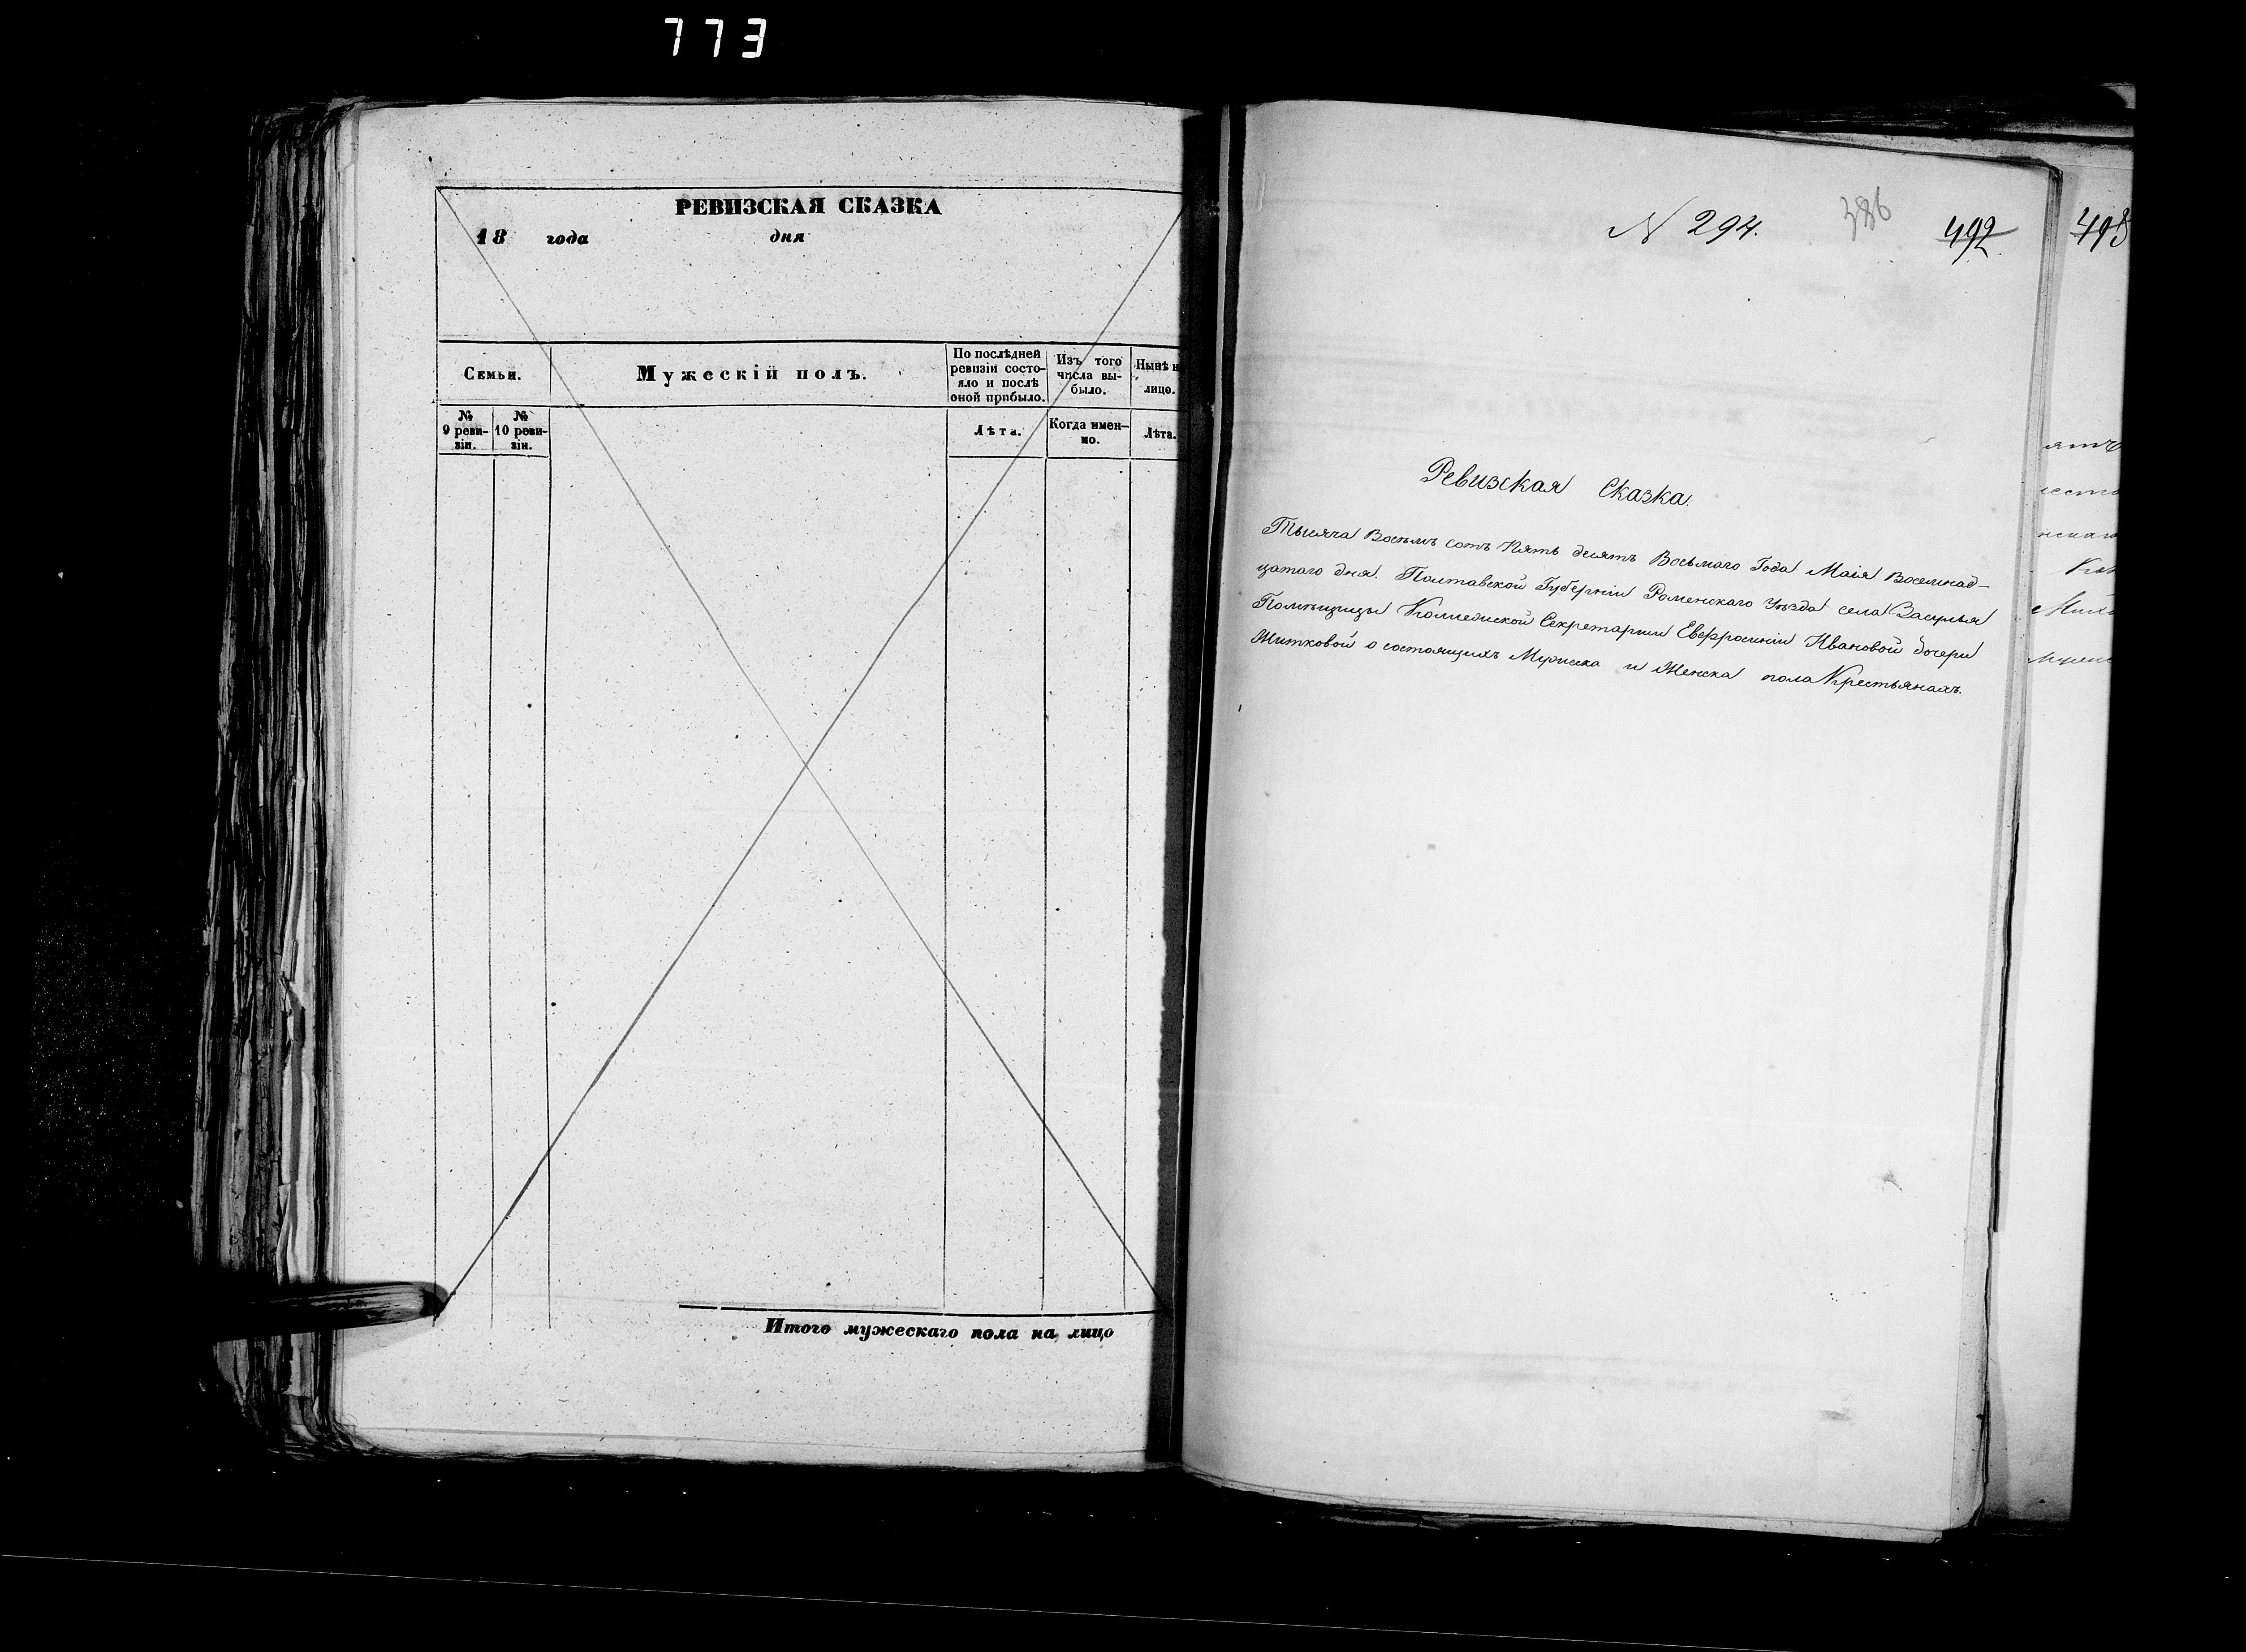 773
РЕВИЗСКАЯ СКАЗКА
18 года дня
Семьи.
Мужескій полъ.
По послѣдней
ревизіи состо-
яло и послѣ
оной прибыло.
Изъ того
числа вы-
было.
Нынѣ н
лицо.
№
9 реви-
зіи.
№
10 реви-
зіи.
Лѣта.
Когда имен-
но.
Лѣта.
Итого мужескаго пола на лицо
N 294.
386
492
Ревизская Сказка.
Тысяча Восемь сотъ Пять десятъ Восьмаго Года Маія Восемнад-
цатаго дня. Полтавской Губерніи Роменскаго Уѣзда села Засулья
Помѣщицы Колежской Секретарши Евфросиніи Ивановой дочери
Житковой о состоящихъ Мужеска и Женска пола Крестьянахъ.